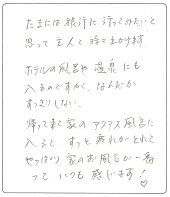 たまには旅行に行ってみたいと
思って主人と時々出かけます
ホテルの風呂や温泉にも
入るのですが、なんだか
すっきりしない。
帰って来て家のアクアス風呂に
入ると、すっと疲れがとれて
やっぱり家のお風呂が一番
って いつも感じます!♡